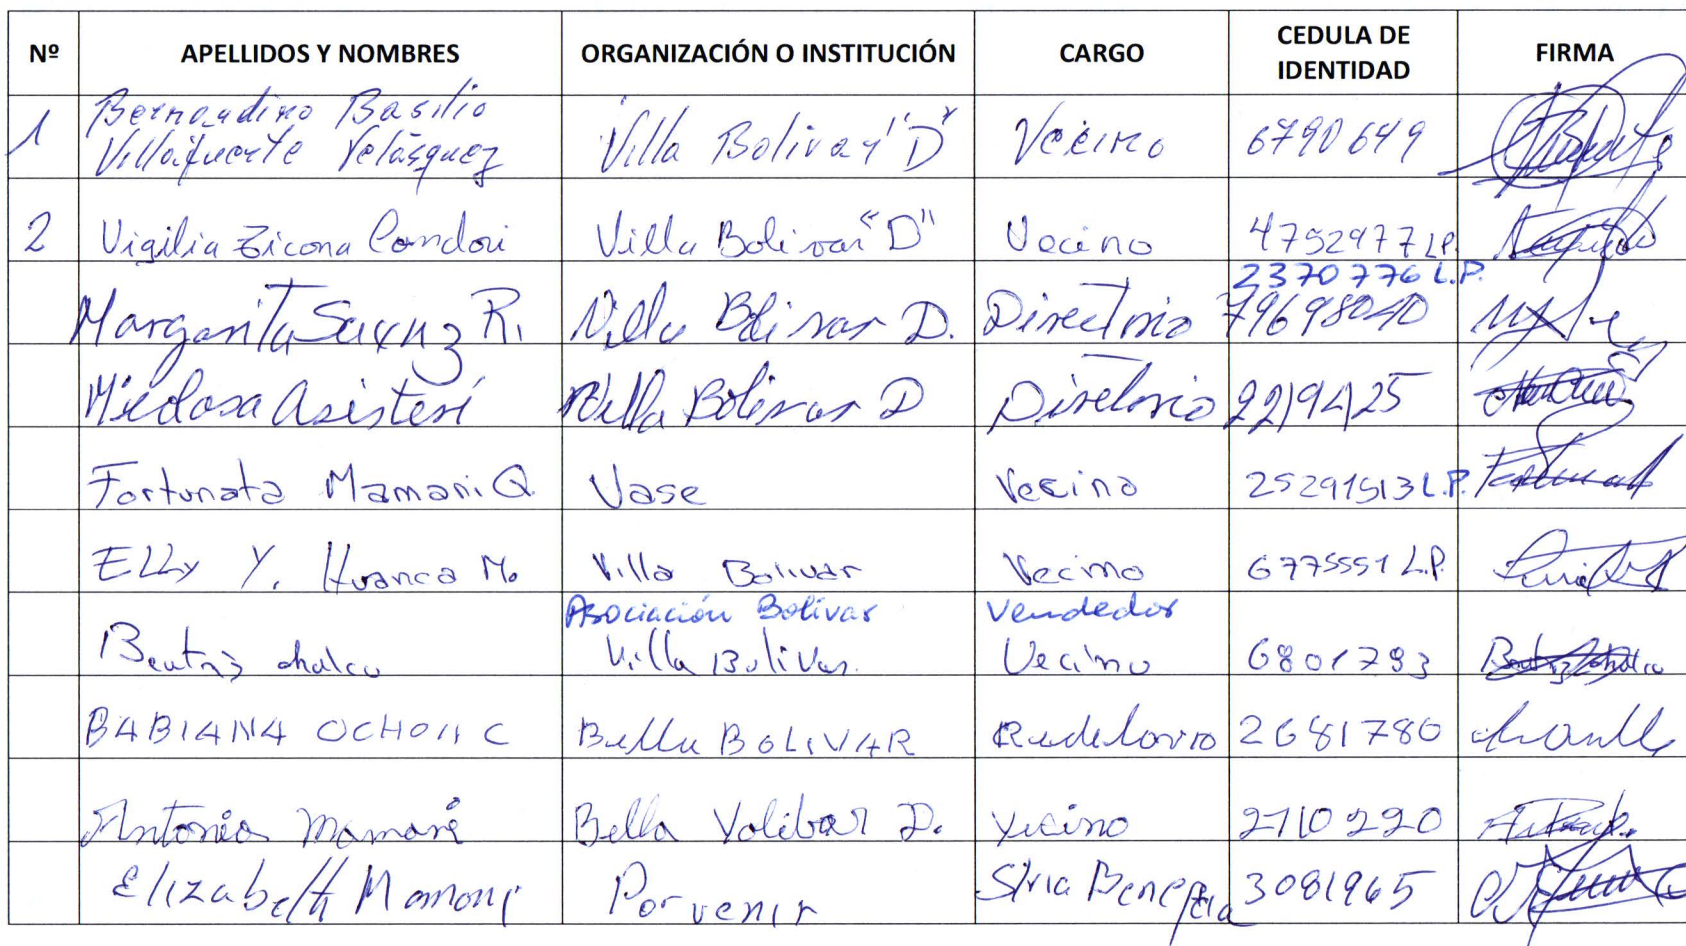 Nº APELLIDOS Y NOMBRES ORGANIZACIÓN O INSTITUCIÓN CARGO CEDULA DE IDENTIDAD FIRMA
1 Bernardino Basilio Villafuerte Velásquez Villa Bolivar "D" Vecino 6790649
2 Vigilia Zicona Condori Villa Bolivar "D" Vecino 4752977 LP.
Margarita R. Villa Bolivar D. Directorio 2370776 L.P. 79698040
Villa Bolivar D Directorio
Fortunata Mamani Q. Vase Vecino L.P.
ELLy Y. Huanca M. Villa Bolivar Vecino 6775551 L.P.
Asociación Bolivar Vendedor
Beatriz chalco Villa Bolivar. Vecino 6801793
BABIANA OCHOA C Bella BOLIVAR 2681780
Antonia Mamani Bella Volibar D. Vecino 2710220
Elizabeth Mamani Porvenir 3081965